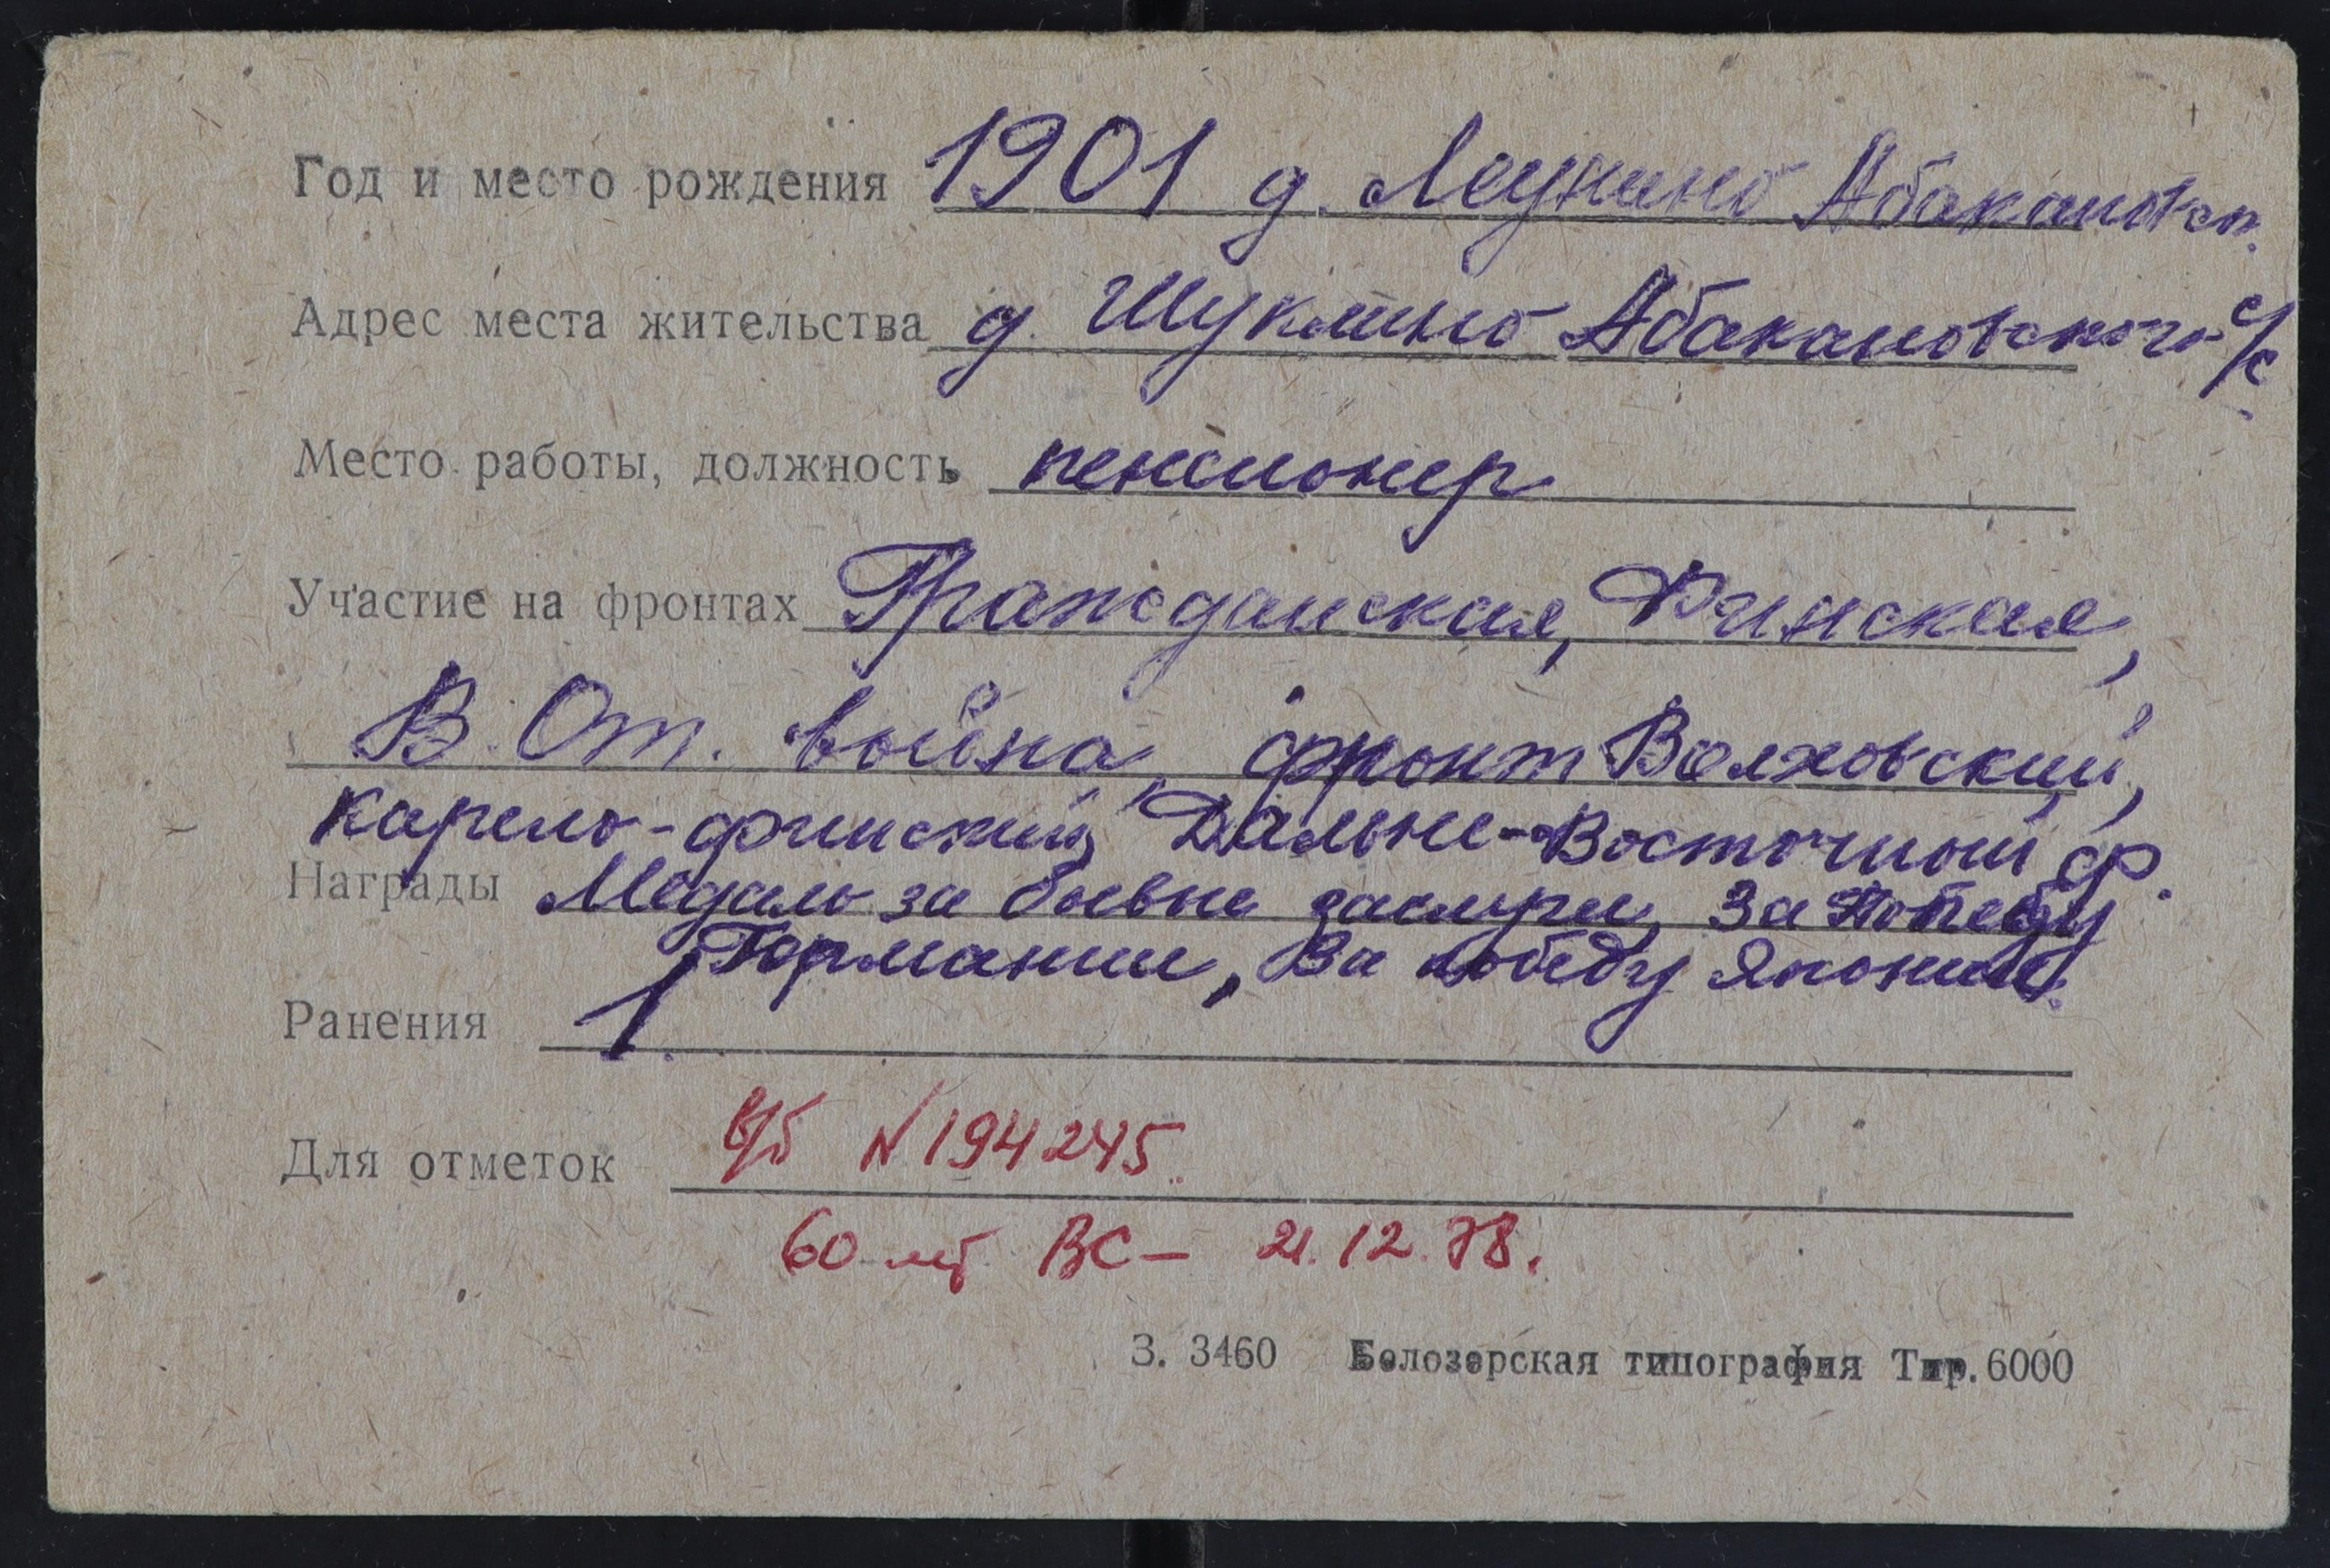 Год и место рождения 1901 д. Леунино Абакановск.
Адрес места жительства д. Шуклино Абакановского с/с.
Место работы, должность пенсионер
Участие на фронтах Гражданская, Финская,
В. От. война, фронт Волховский,
Карело-финский, Дальне-Восточный ф.
Награды Медаль за боевые заслуги, За Победу
Германии, За победу Японией.
Ранения 1.
Для отметок N 194245.
60 лет ВС - 21.12.78.
З. 3460 Белозерская типография Тир. 6000